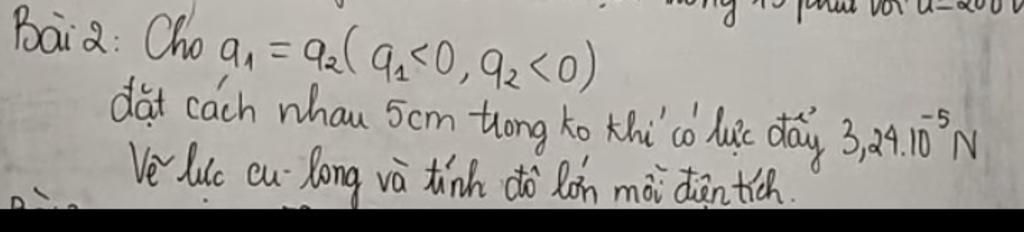 Bài 2: Cho q₁ = q₂ ( q₁ < 0, q₂ < 0 )
đặt cách nhau 5cm trong ko khí có lực đẩy 3,24.10⁻⁵ N
Vẽ lực cu-long và tính độ lớn mỗi điện tích.